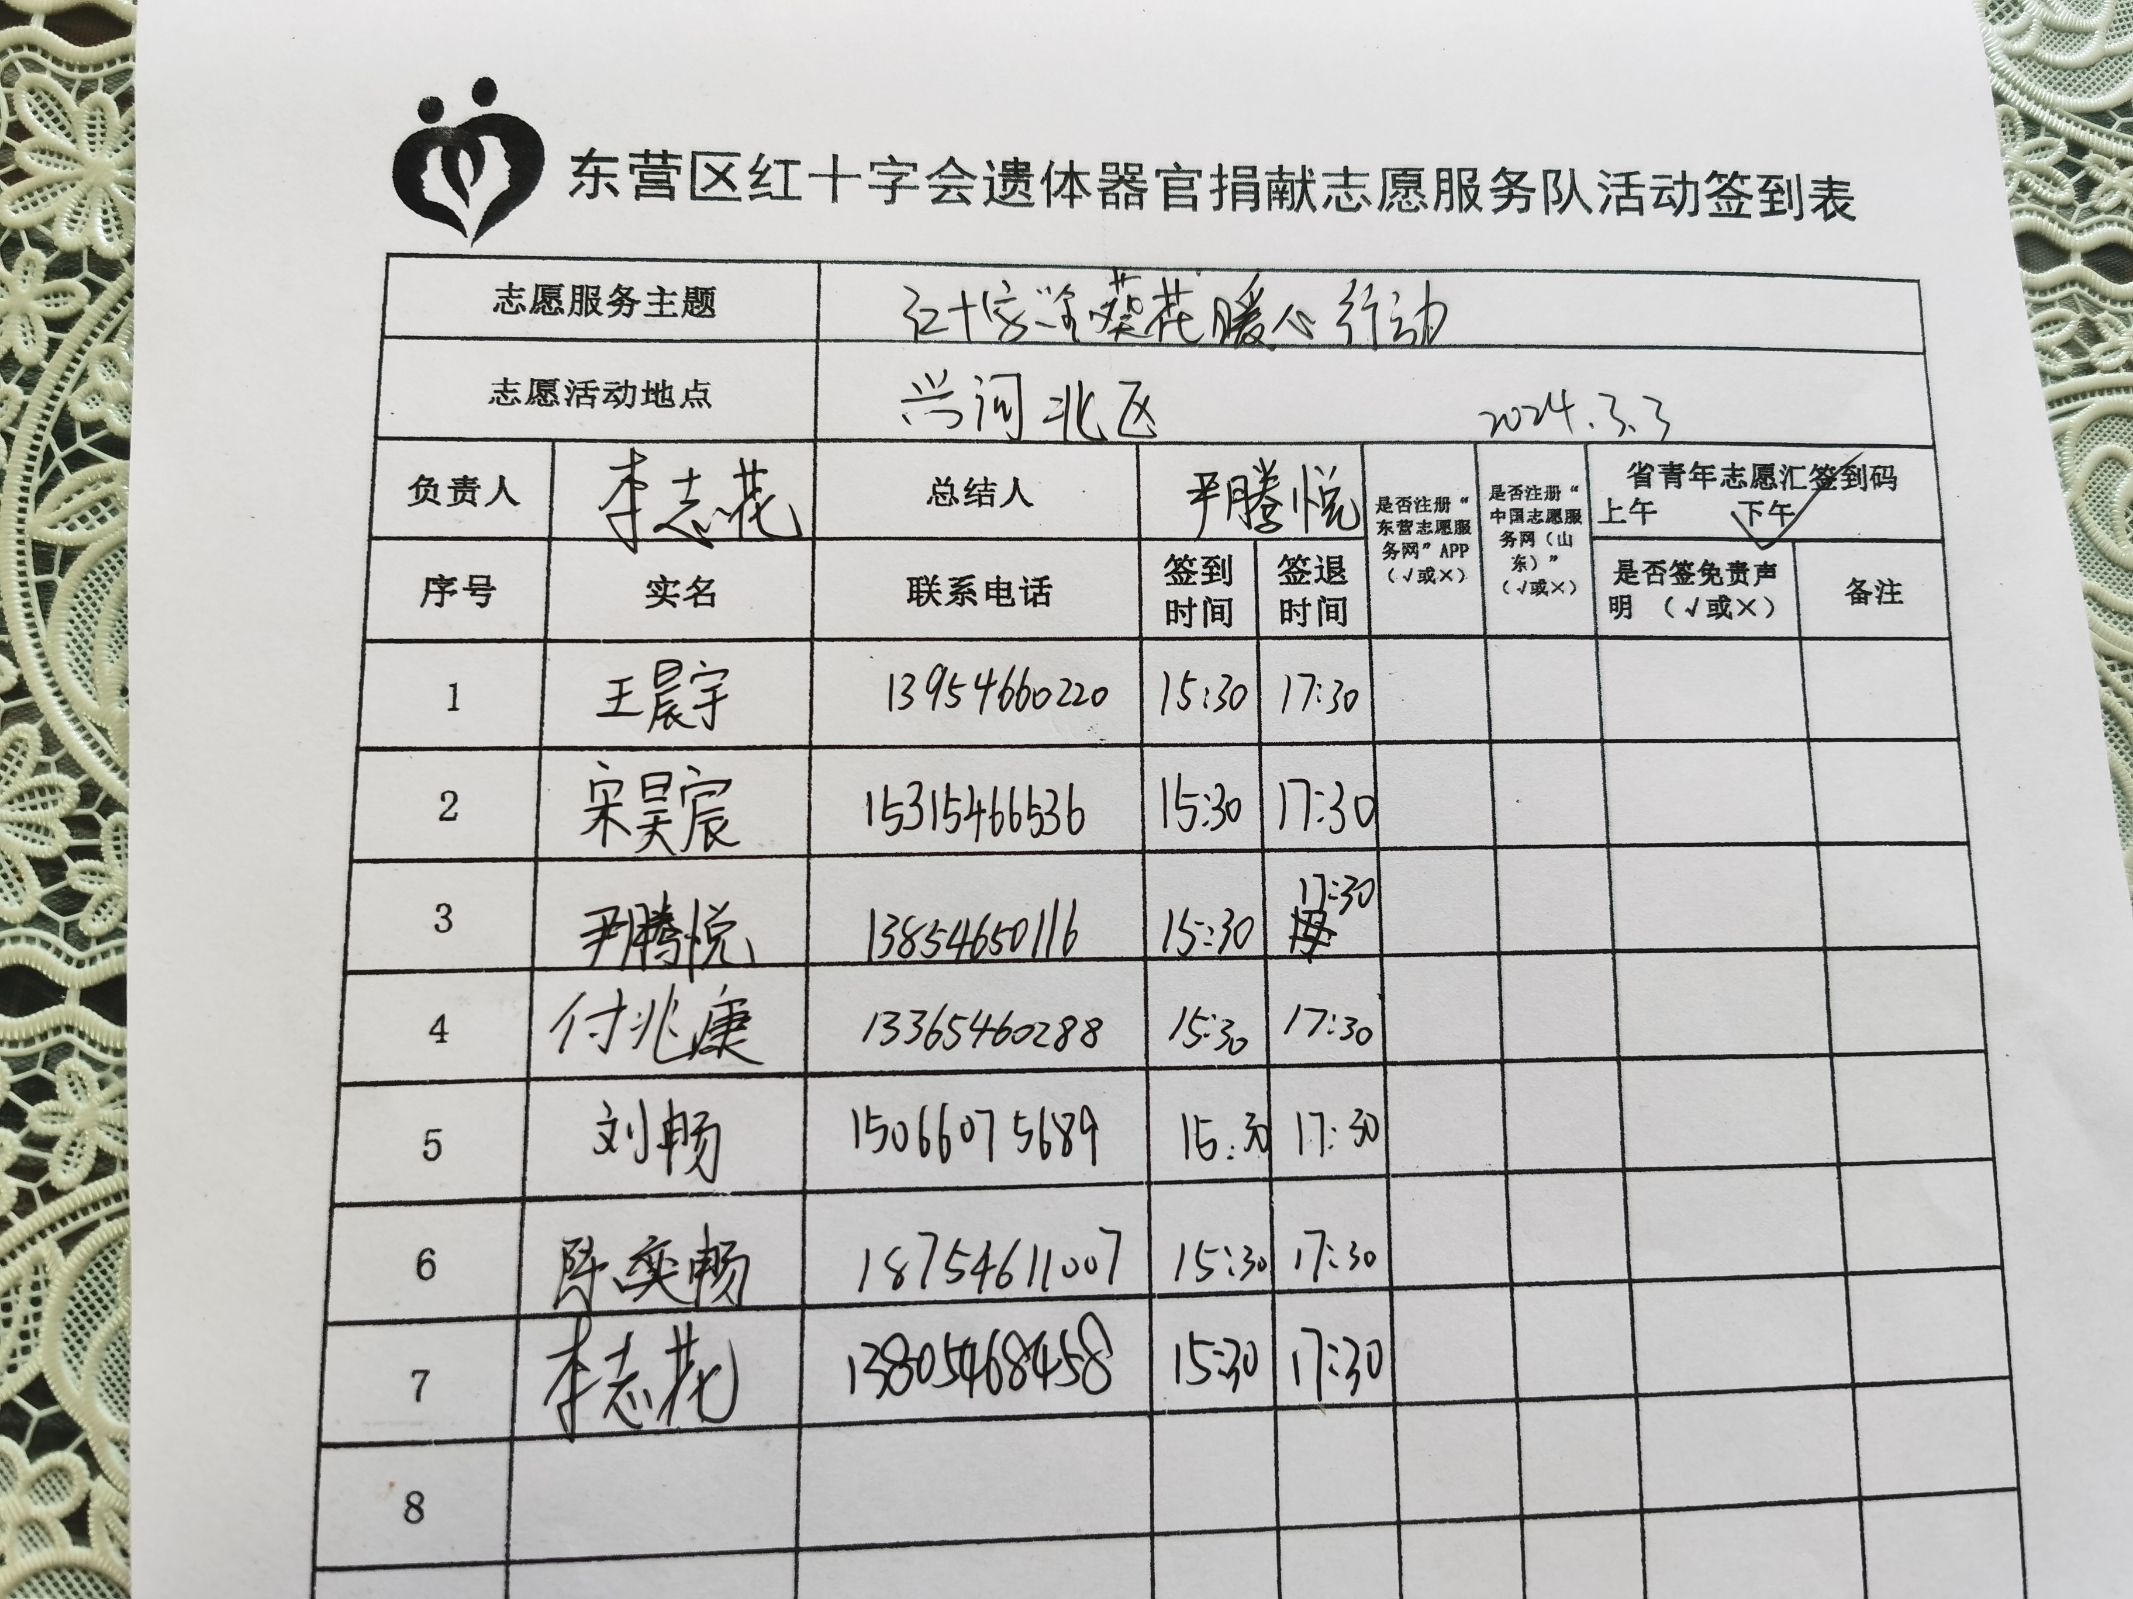 东营区红十字会遗体器官捐献志愿服务队活动签到表
志愿服务主题 红十字 葵花暖心行动
志愿活动地点 兴河北区 2024.3.3
负责人 李志花 总结人 尹腾悦
是否注册“
东营志愿服
务网”APP
（√或×）
是否注册“
中国志愿服
务网（山
东）”
（√或×）
省青年志愿汇签到码
上午 下午 √
序号 实名 联系电话
签到
时间
签退
时间
是否签免责声
明 （√或×）
备注
1 王晨宇 13954660220 15:30 17:30
2 宋昊宸 15315466536 15:30 17:30
3 尹腾悦 13854650116 15:30 17:30
4 付兆康 13365460288 15:30 17:30
5 刘畅 15066075689 15:30 17:30
6 陈奕畅 18754611007 15:30 17:30
7 李志花 13805468458 15:30 17:30
8